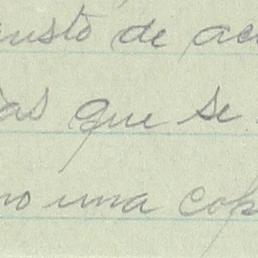 usto de ac
as que se
no una cop